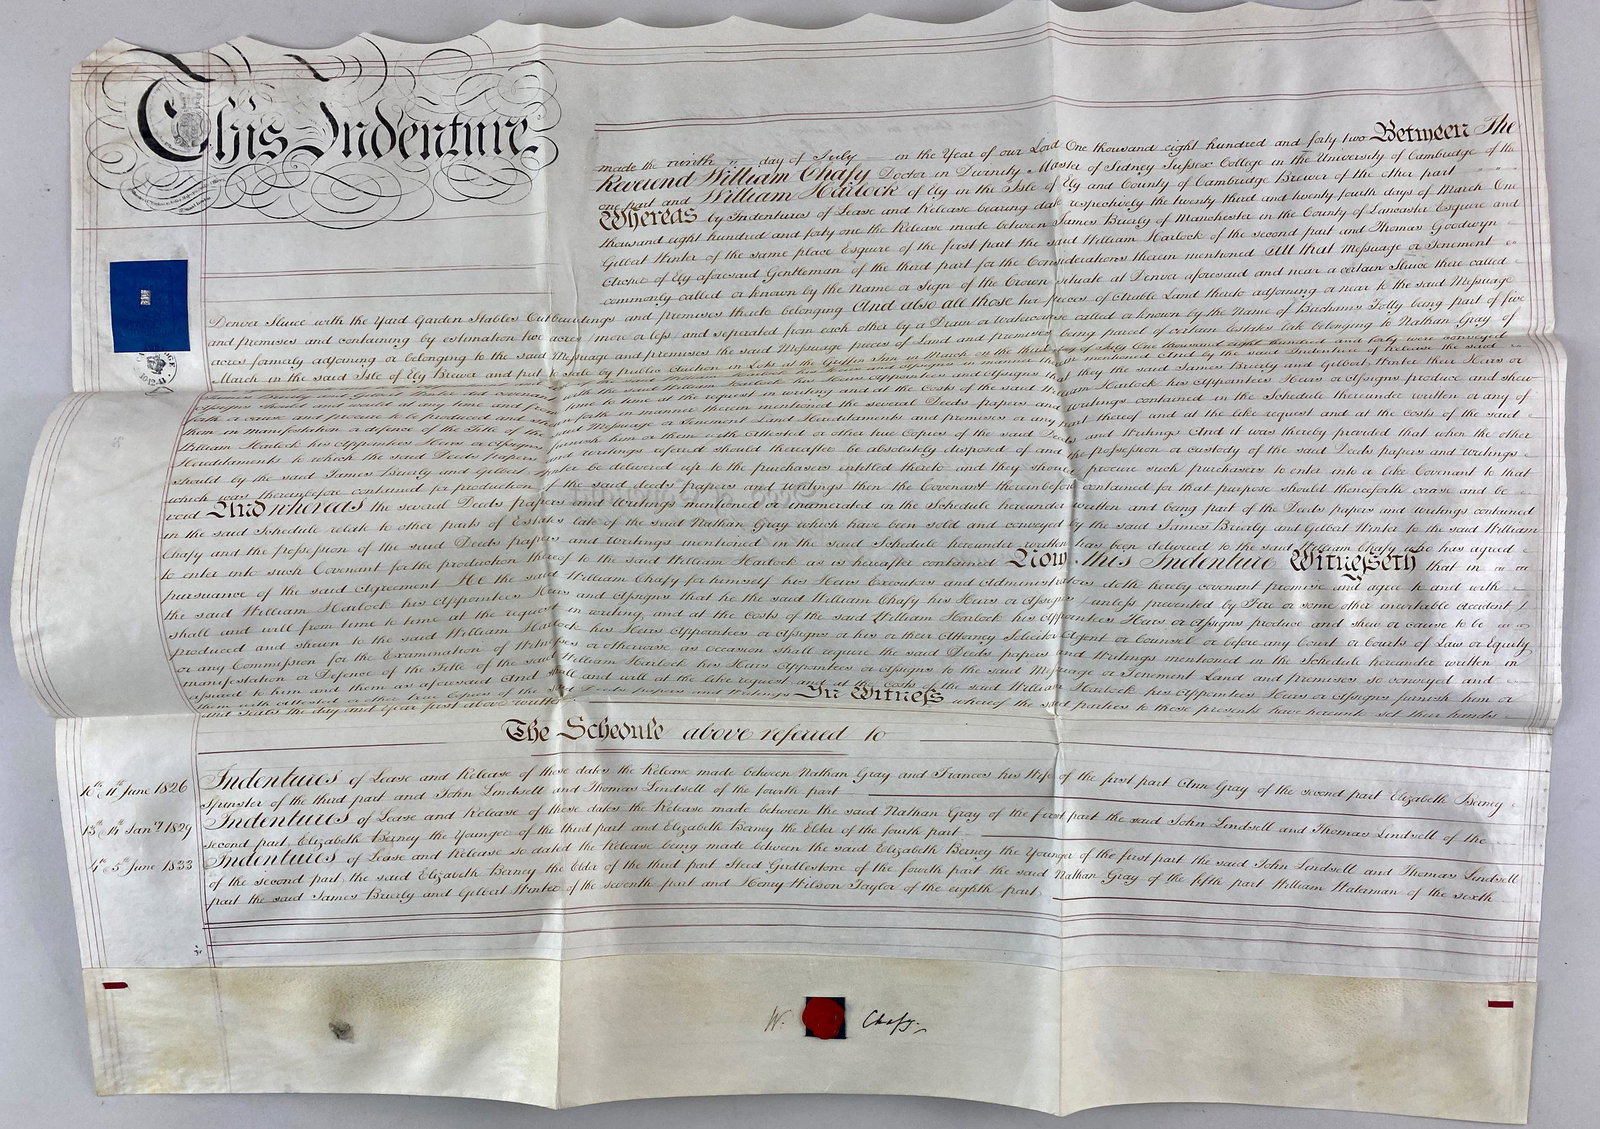 This Indenture
made the ninth day of July in the Year of our Lord One thousand eight hundred and forty two Between The
Reverend William Chafy Doctor in Divinity Master of Sidney Sussex College in the University of Cambridge of the
one part and William Harlock of Ely in the Isle of Ely and County of Cambridge Brewer of the other part
Whereas by Indentures of Lease and Release bearing date respectively the twenty third and twenty fourth days of March One
thousand eight hundred and forty one the Release made between James Brierly of Manchester in the County of Lancaster Esquire and
Gilbert Winter of the same place Esquire of the first part the said William Harlock of the second part and Thomas Goodwyn
of Ely aforesaid Gentleman of the third part for the Considerations therein mentioned All that Messuage or Tenement
commonly called or known by the Name or Sign of the Crown situate at Denver aforesaid and near a certain Sluice there called
Denver Sluice with the Yard Garden Stables Outbuildings and premises thereto belonging And also all those pieces of Arable Land thereto adjoining or near to the said Messuage
and premises and containing by estimation two acres more or less and separated from each other by a Drain or Watercourse called or known by the Name of Folly being part of five
acres formerly adjoining or belonging to the said Messuage and premises the said Messuage pieces of Land and premises being parcel of certain Estates late belonging to Nathan Gray of
March in the said Isle of Ely Brewer and put to sale by public Auction in Lots at the Griffin Inn in March on the third day of July One thousand eight hundred and forty were conveyed
James Brierly and Gilbert Winter did covenant with the said William Harlock his Heirs Appointees and Assigns that they the said James Brierly and Gilbert Winter their Heirs or
Assigns should and would at any time and from time to time at the request in writing and at the Costs of the said William Harlock his Appointees Heirs or Assigns produce and shew
forth or cause and procure to be produced and forth in manner therein mentioned the several Deeds papers and Writings contained in the Schedule thereunder written or any of
them in manifestation or defence of the Title of the said Messuage or Tenement Land Hereditaments and premises or any part thereof and at the like request and at the costs of the said
William Harlock his Appointees Heirs or Assigns furnish him or them with Attested or other true Copies of the said Deeds and Writings And it was thereby provided that when the other
Hereditaments to which the said Deeds papers and writings referred should thereafter be absolutely disposed of and the possession or custody of the said Deeds papers and Writings
should by the said James Brierly and Gilbert Winter be delivered up to the purchasers intitled thereto and they should procure such purchasers to enter into a like Covenant to that
which was thereinbefore contained for production of the said deeds papers and writings then the Covenant thereinbefore contained for that purpose should thenceforth cease and be
void And whereas the several Deeds papers and Writings mentioned or enumerated in the Schedule hereunder written and being part of the Deeds papers and writings contained
in the said Schedule relate to other parts of Estates late of the said Nathan Gray which have been sold and conveyed by the said James Brierly and Gilbert Winter to the said William
Chafy and the possession of the said Deeds papers and Writings mentioned in the said Schedule hereunder written has been delivered to the said William Chafy who has agreed
to enter into such Covenant for the production thereof to the said William Harlock as is hereafter contained Now this Indenture Witnesseth that in
pursuance of the said Agreement He the said William Chafy for himself his Heirs Executors and Administrators doth hereby covenant promise and agree to and with
the said William Harlock his Appointees Heirs and Assigns that he the said William Chafy his Heirs or Assigns (unless prevented by Fire or some other inevitable accident)
shall and will from time to time at the request in writing and at the costs of the said William Harlock his Appointees Heirs or Assigns produce and shew or cause to be
produced and shewn to the said William Harlock his Heirs Appointees or Assigns or his or their Attorney Solicitor Agent or Counsel or before any Court or Courts of Law or Equity
or any Commission for the Examination of Witnesses or otherwise as occasion shall require the said Deeds papers and Writings mentioned in the Schedule hereunder written in
manifestation or Defence of the Title of the said William Harlock his Heirs Appointees or Assigns to the said Messuage or Tenement Land and premises so conveyed and
assured to him and them as aforesaid And shall and will at the like request and at the costs of the said William Harlock his Appointees Heirs or Assigns furnish him or
them with attested or true Copies of the said Deeds papers and Writings In Witness whereof the said parties to these presents have hereunto set their hands
and Seals the day and Year first above written
The Schedule above referred to
10th & 11th June 1826 Indentures of Lease and Release of these dates the Release made between Nathan Gray and Frances his Wife of the first part Ann Gray of the second part Elizabeth Berney
Spinster of the third part and John Lindsell and Thomas Lindsell of the fourth part
13th & 14th Jany 1829 Indentures of Lease and Release of these dates the Release made between the said Nathan Gray of the first part the said John Lindsell and Thomas Lindsell of the
second part Elizabeth Berney the Younger of the third part and Elizabeth Berney the Elder of the fourth part
4th & 5th June 1833 Indentures of Lease and Release so dated the Release being made between the said Elizabeth Berney the Younger of the first part the said John Lindsell and Thomas Lindsell
of the second part the said Elizabeth Berney the Elder of the third part Steed Girdlestone of the fourth part the said Nathan Gray of the fifth part William of the sixth
part the said James Brierly and Gilbert Winter of the seventh part and Henry Wilson Taylor of the eighth part
W. Chafy.